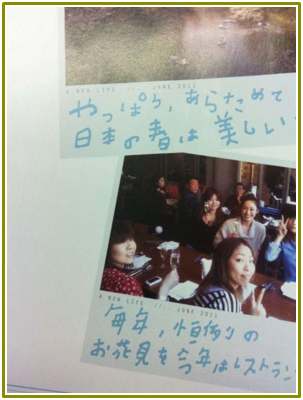 A NEW LIFE // .. JUNE 2011
やっぱり,あらためて
日本の春は美しい
A NEW LIFE // .. JUNE 2011
毎年,恒例の
お花見を今年はレストラン